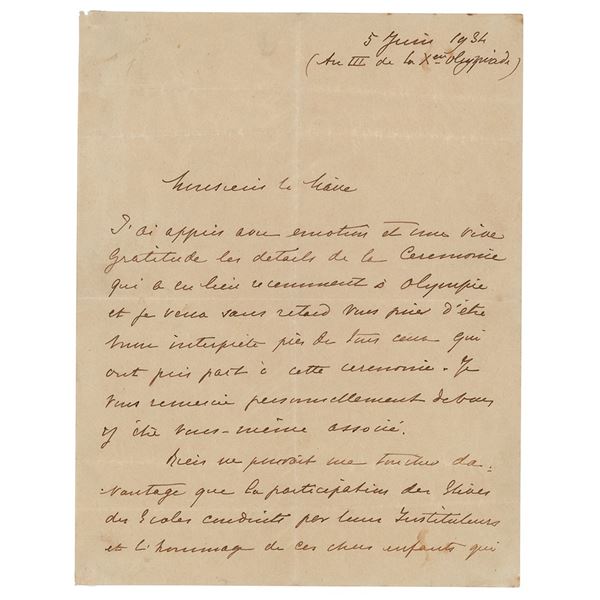 5 Juin 1934
(An III de la Xème Olympiade)
Monsieur le Maire
J'ai appris avec emotion et une vive
Gratitude les details de la Ceremonie
qui a eu lieu recemment à Olympie
et je veux sans retard vous prier d'être
mon interprète près de tous ceux qui
ont pris part à cette ceremonie. Je
vous remercie personnellement de vous
y être vous-même associé.
Rien ne pouvait me toucher da-
vantage que la participation des Elèves
des Ecoles conduits par leurs Instituteurs
et l'hommage de ces chers enfants qui